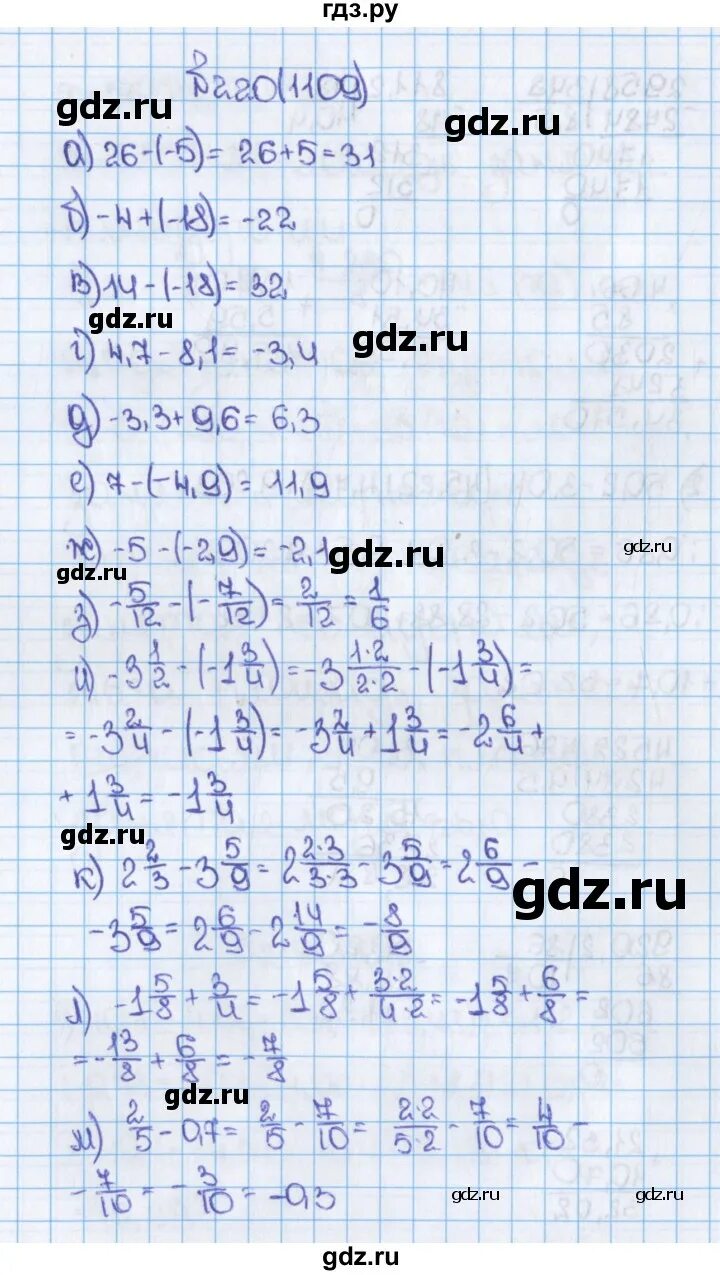 гдз.ру
№220(1109)
gdz.ru
gdz.ru
а) 26-(-5)= 26+5=31
б) -4+(-18)= -22
в) 14-(-18)= 32
gdz.ru
gdz.ru
г) 4,7-8,1= -3,4
д) -3,3+9,6= 6,3
е) 7-(-4,9)= 11,9
ж) -5-(-2,9)= -2,1
gdz.ru
gdz.ru
gdz.ru
з) -5/12-(-7/12)= 2/12=1/6
и) -3 1/2-(-1 3/4)=-3 1·2/2·2-(-1 3/4)=
=-3 2/4-(-1 3/4)= -3 2/4+1 3/4=-2 6/4+
+1 3/4= -1 3/4
gdz.ru
к) 2 2/3-3 5/9=2 2·3/3·3-3 5/9=2 6/9-
gdz.ru
-3 5/9=2 6/9-2 14/9=-8/9
л) -1 5/8+3/4=-1 5/8+3·2/4·2=-1 5/8+6/8=
=-13/8+6/8=-7/8
gdz.ru
м) 2/5-0,7= 2/5-7/10= 2·2/5·2-7/10=4/10-
-7/10=-3/10=-0,3
gdz.ru
gdz.ru
gdz.ru